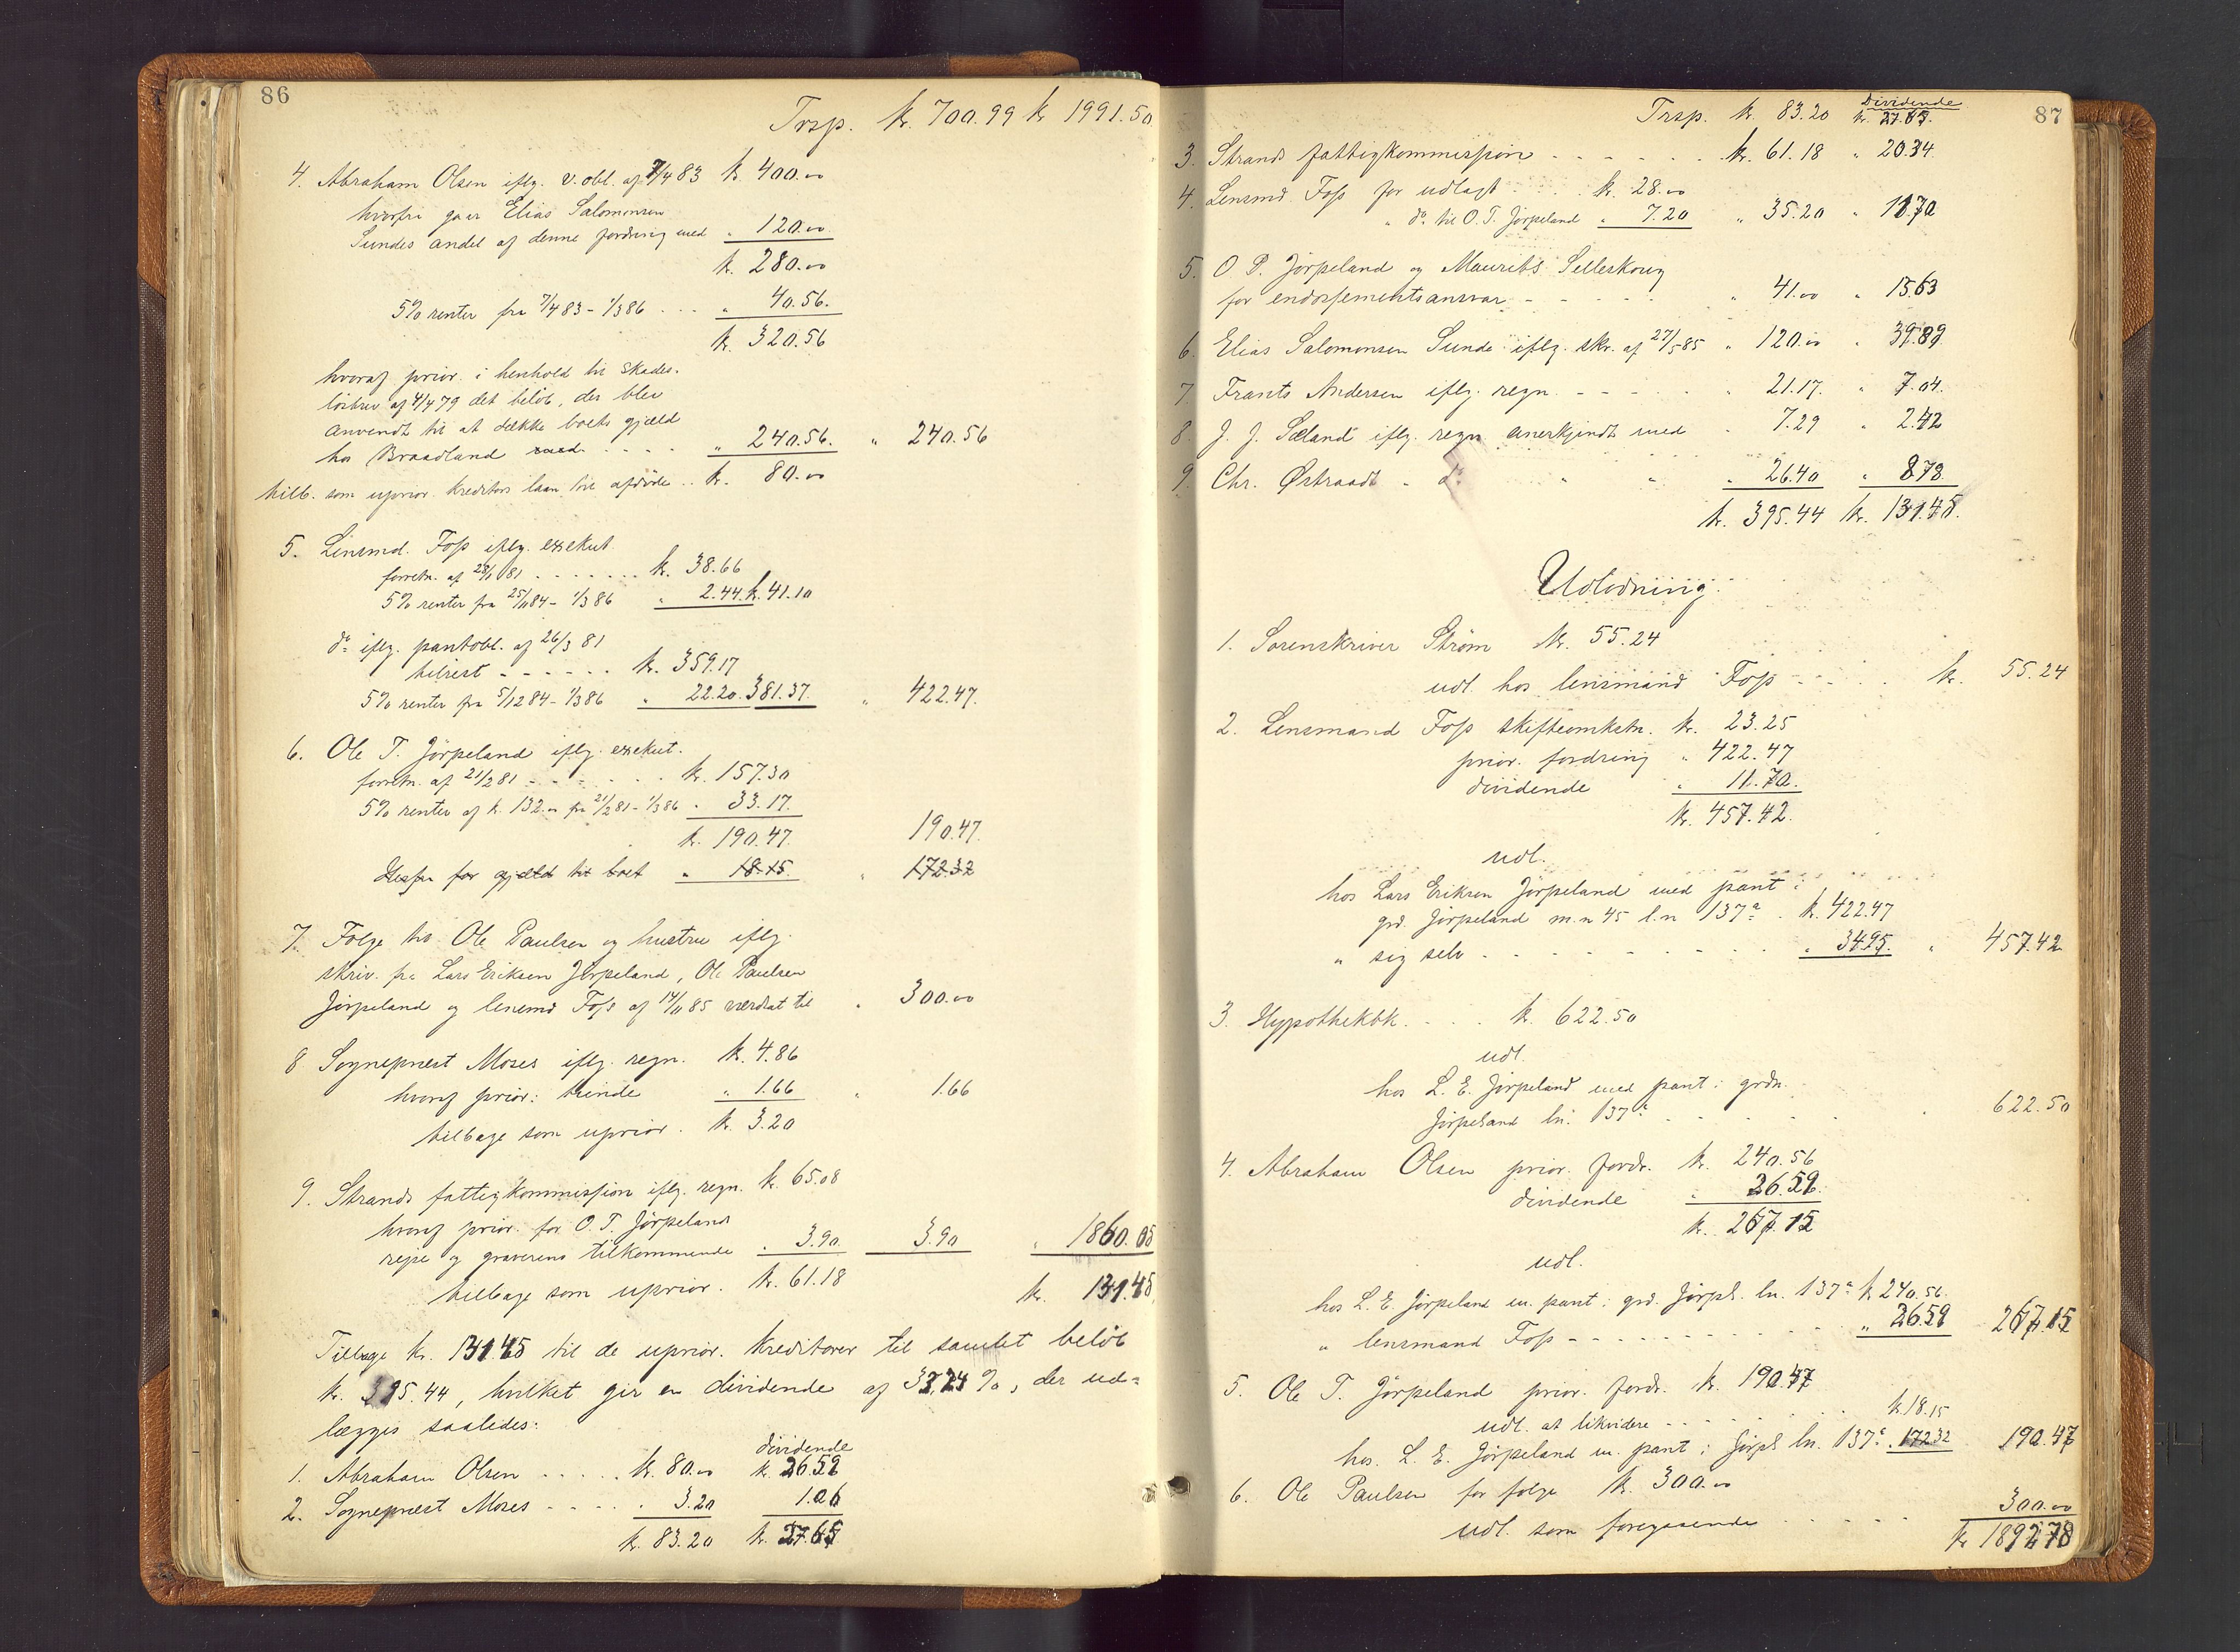 86
Trsp. kr. 700.99 kr 1991.50
4. Abraham Olsen iflg. v. obl. af 7/4 83 kr 400.00
hvorfra gaar Elias Salomonsen
Sundes andel af denne fordring med " 120.00
kr. 280.00
5% renter fra 7/4 83 - 1/3 86 . . . " 40.56.
kr. 320.56
hvoraf prior. i henhold til skades-
løsbrev af 4/4 79 det beløb, der blev
anvendt til at dække boets gjæld
hos Braadland . . . . " 240.56. " 240.56
tilb. som uprior. kreditors laan til afdøde .. kr. 80.00
5. Lensmd. Foss iflg. exekut.
forretn. af 28/1 81 . . . . . . . kr. 38.66
5% renter fra 25/11 84 - 1/3 86 " 2.44. kr. 41.10
do iflg. pantobl. af 26/3 81
tilrest - - - - - - kr. 359.17
5% renter fra 5/12 84 - 1/3 86 " 22.20. 381.37. " 422.47.
6. Ole T. Jørpeland iflg. exekut.
forretn. af 21/2 81 - - - - - . . kr. 157.30
5% renter af kr. 132.00 fra 21/2 81 - 1/3 86 " 33.17.
kr. 190.47. 190.47.
Herfra for gjæld til boet " 18.15. " 172.32
7. Følge til Ole Paulsen og hustru iflg.
skriv. fra Lars Eriksen Jørpeland, Ole Paulsen
Jørpeland og lensmd Foss af 14/11 85 værdsat til " 300.00
8 Sognepræst Moses iflg. regn. kr. 4.86
hvoraf prior: tiende " 1.66 " 1.66
tilbage som uprior. kr. 3.20
9. Strands fattigkommission iflg. regn. kr. 65.08
hvoraf prior. for O. T. Jørpelands
rejse og graverens tilkommende " 3.90. 3.90 " 1860.05
tilbage som uprior. kr. 61.18 kr. 131.45
Tilbage kr. 131.45 til de uprior. kreditorer til samlet beløb
kr. 395.44, hvilket gir en dividende af 33,24 %, der ud-
lægges saaledes:
dividende
1. Abraham Olsen . . . . . kr. 80.00 kr. 26.59
2. Sognepræst Moses - - - - . " 3.20 1.06
kr. 83.20 kr. 27.65
87
Dividende
Trsp. kr. 83.20 kr. 27.65.
3. Strands fattigkommission - - - - - . . kr. 61.18 " 20.34.
4. Lensmd Foss for udlagt . . . kr. 28.00
" do til O. T. Jørpeland " 7.20 " 35.20 " 11.70
5. O. P. Jørpeland og Maurits Selleskoug
for endossementsansvar - - - - - . " 41.00 " 13.63
6. Elias Salomonsen Sunde iflg. skr. af 27/5 85 " 120.00 " 39.89
7. Frants Andersen iflg. regn. - - - - . " 21.17. " 7.04.
8. J. J. Sæland iflg. regn anerkjendt med " 7.29 " 2.42
9. Chr. Østraadt " do " " " 26.40 " 8.78
kr. 395.44 kr. 131.45.
Udlodning.
1. Sorenskriver Strøm kr. 55.24
udl. hos lensmand Foss - - . . . kr. 55.24
2. Lensmand Foss skifteomkstn. kr. 23.25
prior. fordring " 422.47
dividende " 11.70.
kr. 457.42.
udl.
hos Lars Eriksen Jørpeland med pant i
grd. Jørpeland m.n 45 l.n 137a . kr. 422.47
" sig selv - - - - - - - - " 34.95. " 457.42
3. Hypothekbk. . . . . kr. 622.50
udl.
hos L. E. Jørpeland med pant i grdn.
Jørpeland ln. 137a - - - - - - 622.50
4. Abraham Olsen prior. fordr. kr. 240.56
dividende " 26.59.
kr. 267.15
udl.
hos L. E. Jørpeland m. pant i grd. Jørpl. ln. 137a kr 240.56.
" lensmand Foss - - - - - - - - - - - " 26.59 267.15
5. Ole T. Jørpeland prior. fordr. kr. 190.47
udl. at likvidere - - - - . . . kr. 18.15
hos. L. E. Jørpeland m. pant i Jørpl ln. 137a " 172.32 190.47
6. Ole Paulsen for følge kr. 300.00
udl. som foregaaende . . . . . 300.00
kr 1892.78